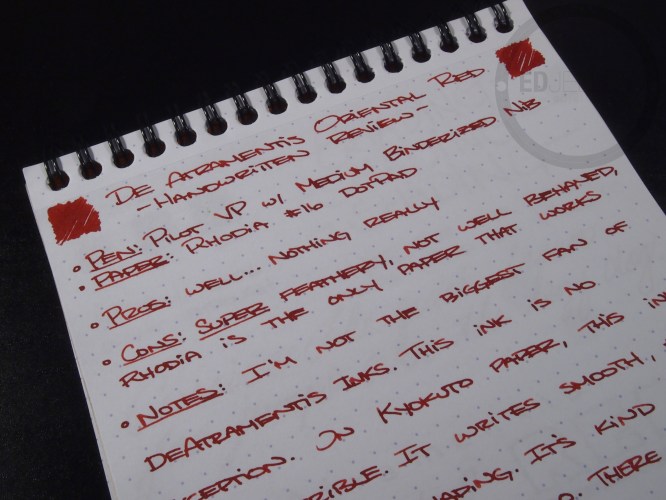 De Atramentis Oriental Red
- Handwritten Review -
• Pen: Pilot VP w/ Medium Binderized Nib
• Paper: Rhodia #16 DotPad
• Pros: Well... nothing really
• Cons: Super feathery, not well behaved,
Rhodia is the only paper that works
• Notes: I'm not the biggest fan of
DeAtramentis inks. This ink is no
ception. On Kyokuto paper, this in
rible. It writes smooth,
ading. It's kind
There
ED